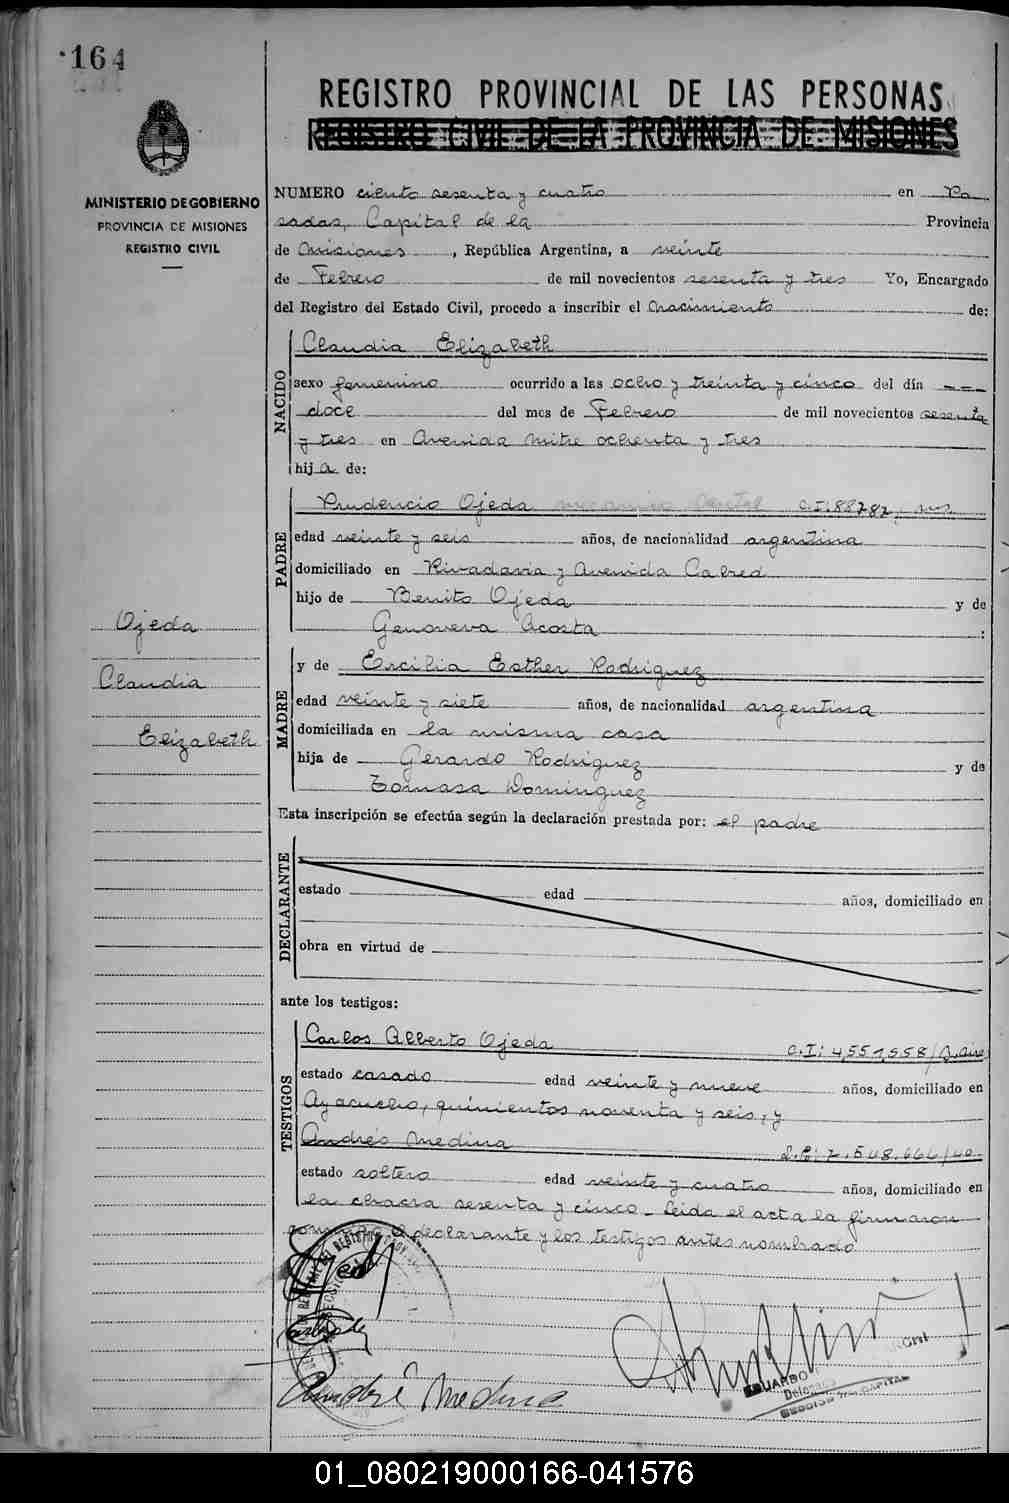 164
REGISTRO PROVINCIAL DE LAS PERSONAS
REGISTRO CIVIL DE LA PROVINCIA DE MISIONES
MINISTERIO DE GOBIERNO
PROVINCIA DE MISIONES
REGISTRO CIVIL
NUMERO ciento sesenta y cuatro en Po
sadas, Capital de la Provincia
de Misiones, República Argentina, a veinte
de Febrero de mil novecientos sesenta y tres Yo, Encargado
del Registro del Estado Civil, procedo a inscribir el Nacimiento de:
NACIDO
Claudia Elizabeth
sexo femenino ocurrido a las ocho y treinta y cinco del día
doce del mes de Febrero de mil novecientos sesenta
y tres en Avenida Mitre ochenta y tres
hija de:
PADRE
Prudencio Ojeda C.I: 88782,
edad veinte y seis años, de nacionalidad argentina
domiciliado en Rivadavia y Avenida Cabred
hijo de Benito Ojeda y de
Genoveva Acosta :
Ojeda
Claudia
Elizabeth
MADRE
y de Ercilia Esther Rodriguez
edad veinte y siete años, de nacionalidad argentina
domiciliada en la misma casa
hija de Gerardo Rodriguez y de
Tomasa Dominguez
Esta inscripción se efectúa según la declaración prestada por: el padre
DECLARANTE
estado edad años, domiciliado en
obra en virtud de
ante los testigos:
TESTIGOS
Carlos Alberto Ojeda C.I: 4,551,558/B.Aire
estado casado edad veinte y nueve años, domiciliado en
Ayacucho, quinientos noventa y seis, y
Andrés Medina
estado soltero edad veinte y cuatro años, domiciliado en
la chacra sesenta y cinco. Leida el acta la firmaron
declarante y los testigos antes nombrado
Andrés Medina
EDUARDO
SECCION CAPITAL
01_080219000166-041576